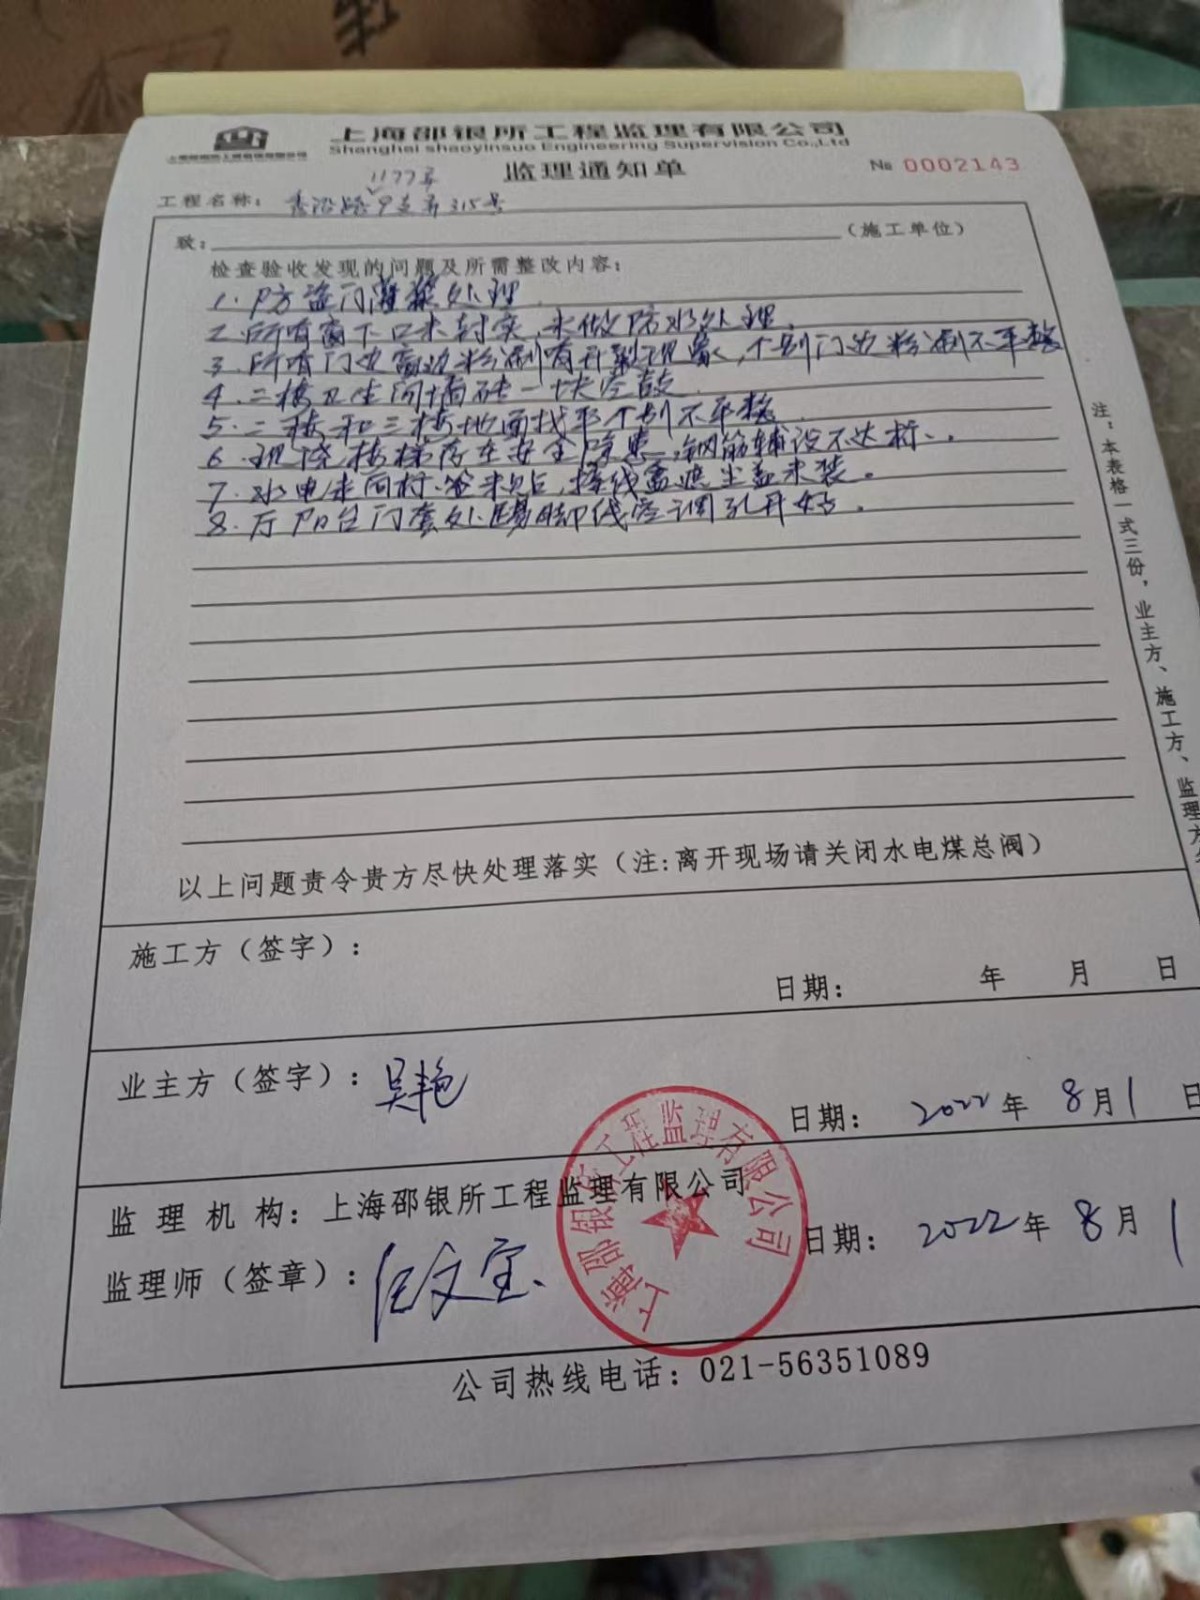 上海邵银所工程监理有限公司
Shanghai shaoyinsuo Engineering Supervision Co.,Ltd
监理通知单
№ 0002143
1177弄
工程名称： 秀沿路 支弄315号
致： （施工单位）
检查验收发现的问题及所需整改内容：
1. 防盗门灌浆处理
2. 所有窗下口未封实，未做防水处理，
3. 所有门边窗边粉刷有开裂现象，个别门边粉刷不平整
4. 二楼卫生间墙砖一块空鼓
5. 二楼和三楼地面找平个别不平整
6. 现浇楼梯存在安全隐患，钢筋铺设不达标。
7. 水电走向 未贴，接线盒遮尘盖未装。
8. 厅阳台门套处踢脚线空调孔开好。
以上问题责令贵方尽快处理落实（注:离开现场请关闭水电煤总阀）
注：本表格一式三份，业主方、施工方、监理方
施工方（签字）：
日期： 年 月 日
业主方（签字）：吴艳
日期： 2022年 8月1日
监 理 机 构：上海邵银所工程监理有限公司
监理师（签章）：任文宝
日期： 2022年 8月1
上海邵银所工程监理有限公司
公司热线电话：021-56351089